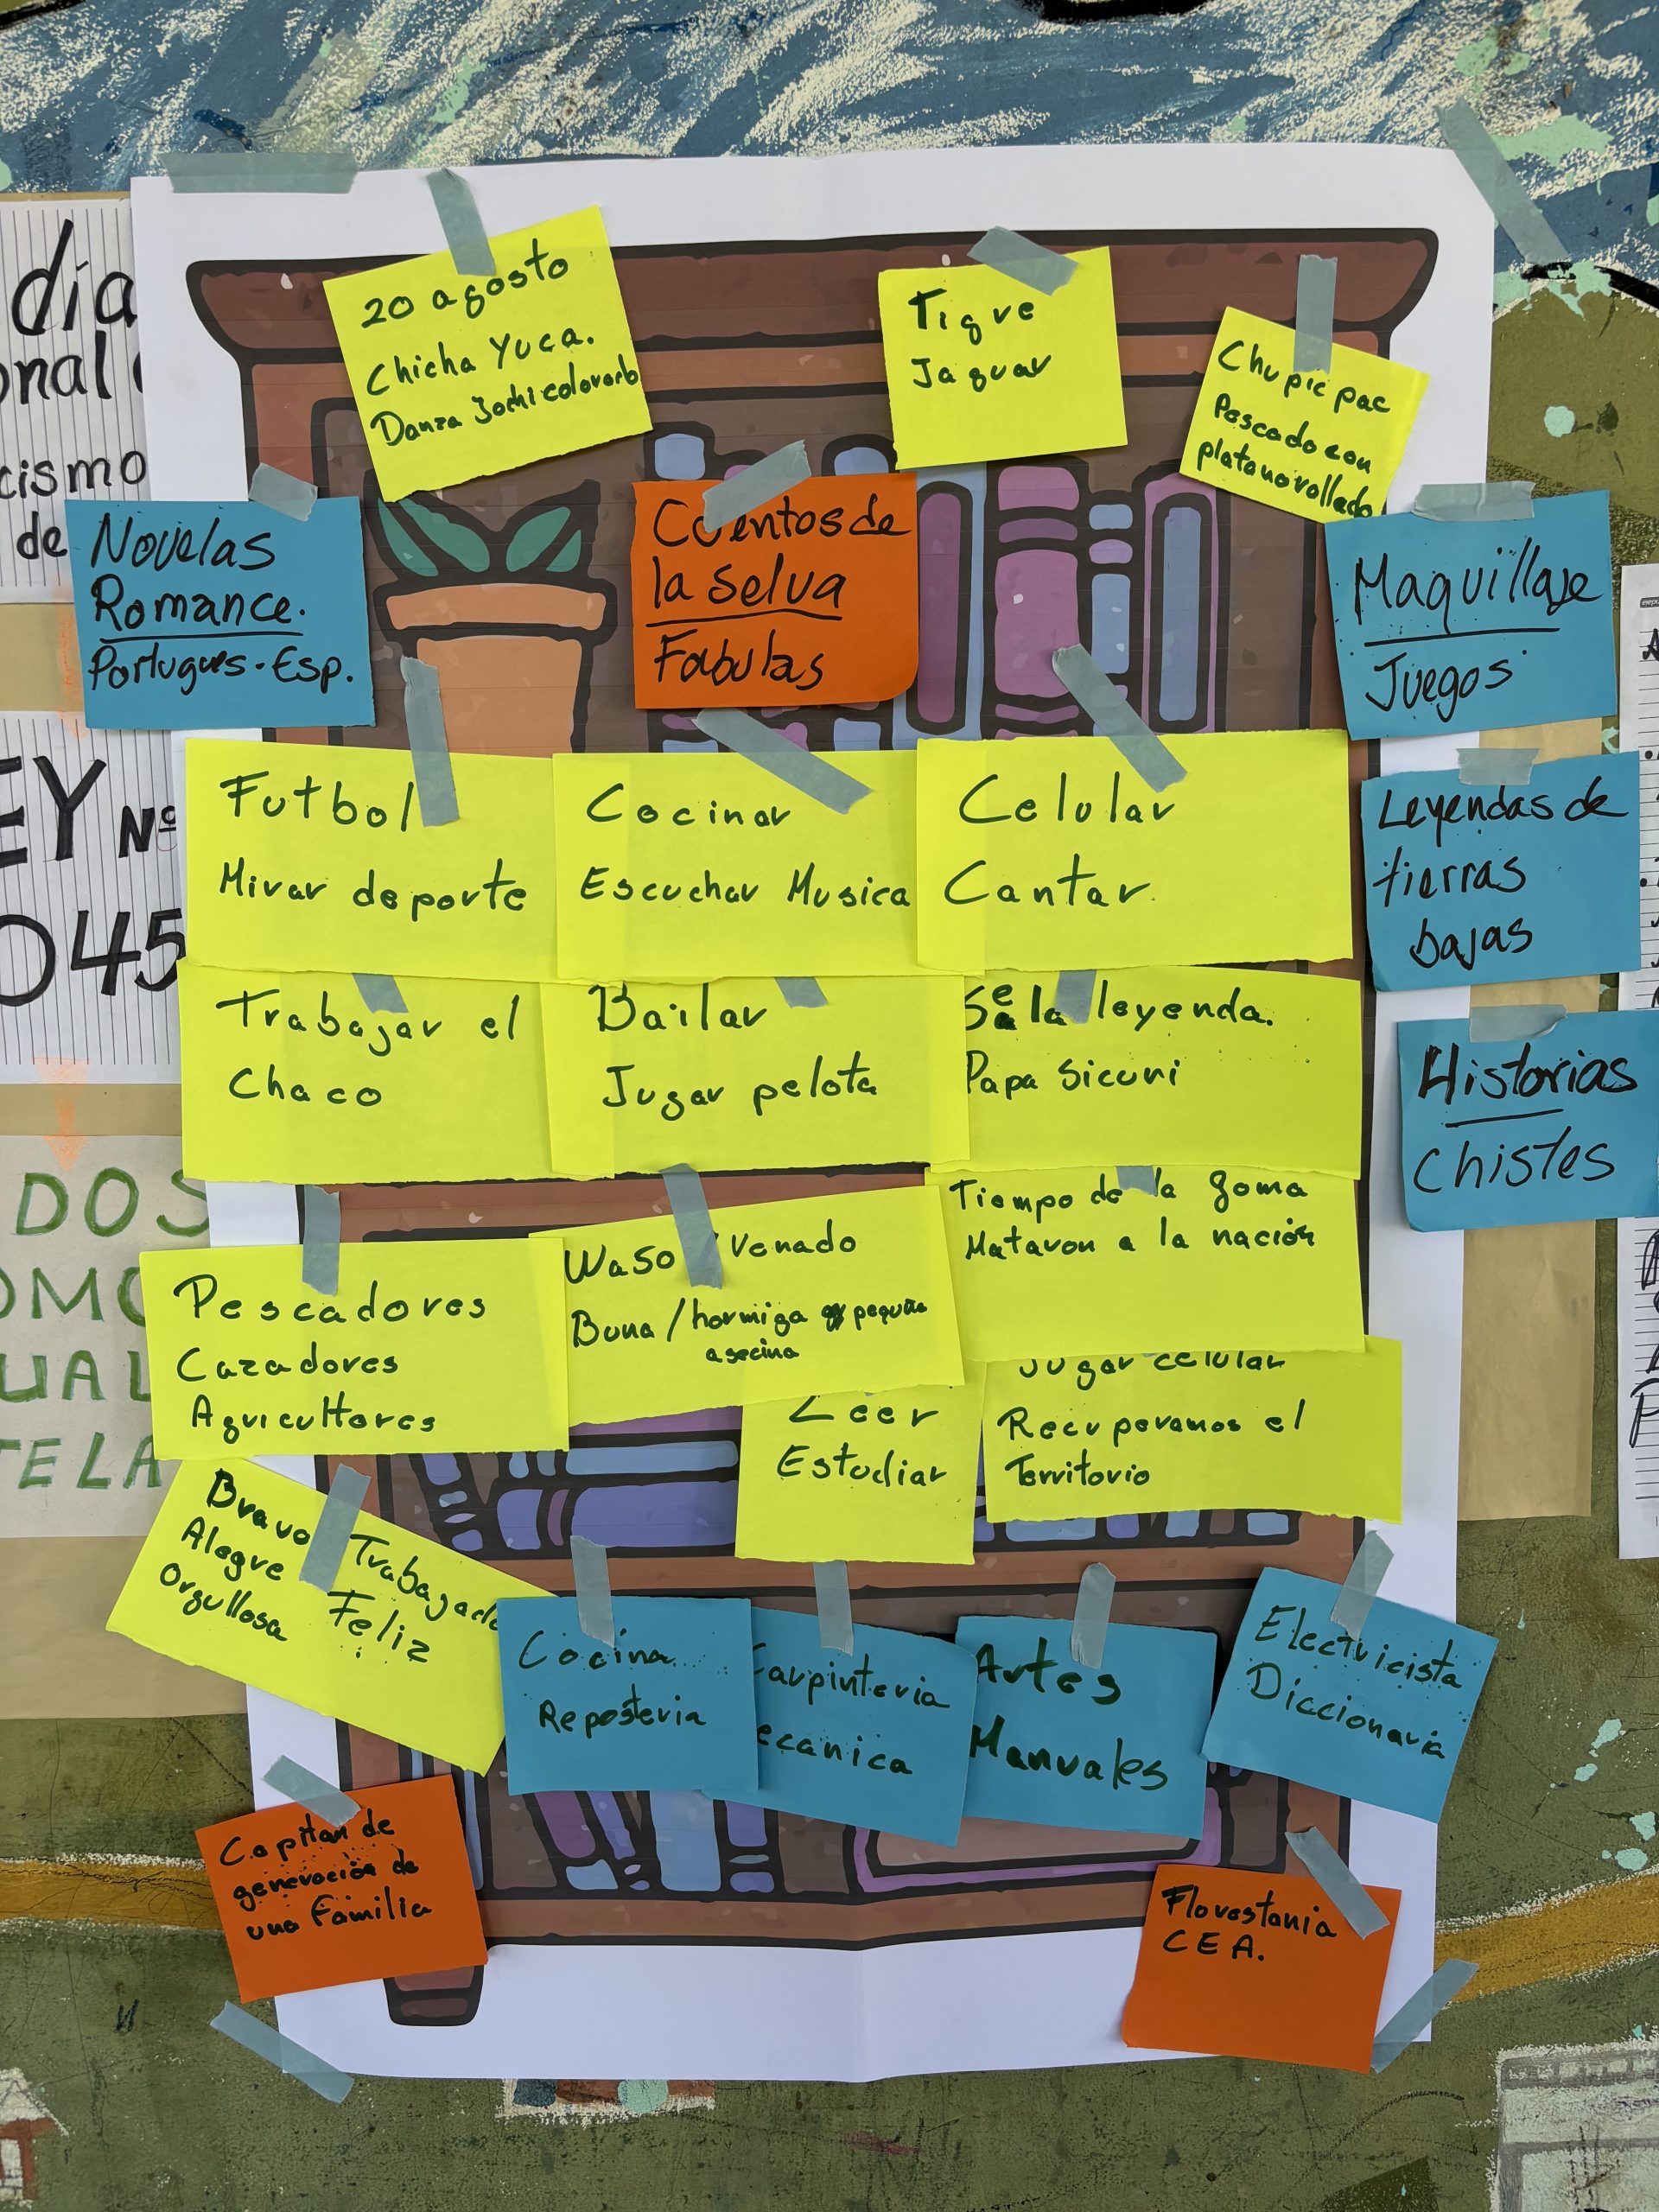 20 agosto
Chicha Yuca.
Danza Jochi colorado
Tigre
Jaguar
Chu pic pac
Pescado con
platano rollado
Novelas
Romance.
Portugues - Esp.
Cuentos de
la selva
Fabulas
Maquillaje
Juegos
Leyendas de
tierras
bajas
Historias
Chistes
Futbol
Mirar deporte
Cocinar
Escuchar Musica
Celular
Cantar.
Trabajar el
Chaco
Bailar
Jugar pelota
la leyenda.
Papa Sicuri
Pescadores
Cazadores
Agricultores
Waso / Venado
Buna / hormiga pequeña
asecina
Tiempo de la goma
Mataron a la nación
Leer
Estudiar
Jugar celular
Recuperamos el
Territorio
Bravo
Alegre
Orgullosa
Trabajado
Feliz
Cocina
Reposteria
Carpinteria
ecanica
Artes
Manuales
Electricista
Diccionario
Capitan de
generación de
una Familia
Florestania
CEA.
día
onal
cismo
de
EY Nº
045
DOS
OMO
UAL
TELA